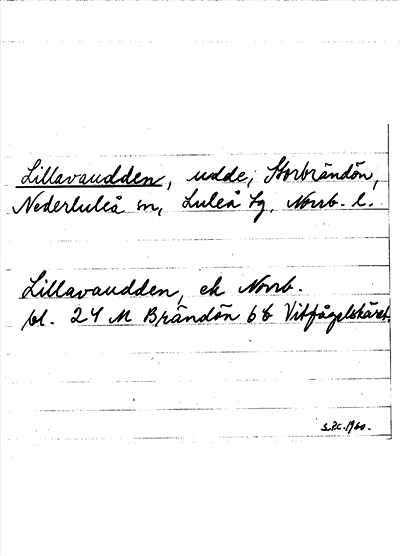 Lillavaudden, udde, Storbrändön,
Nederluleå sn, Luleå tg, Norrb. l.
Lillavaudden, ek Norrb.
bl. 24 M Brändön 6b Vitfågelskäret.
1960.